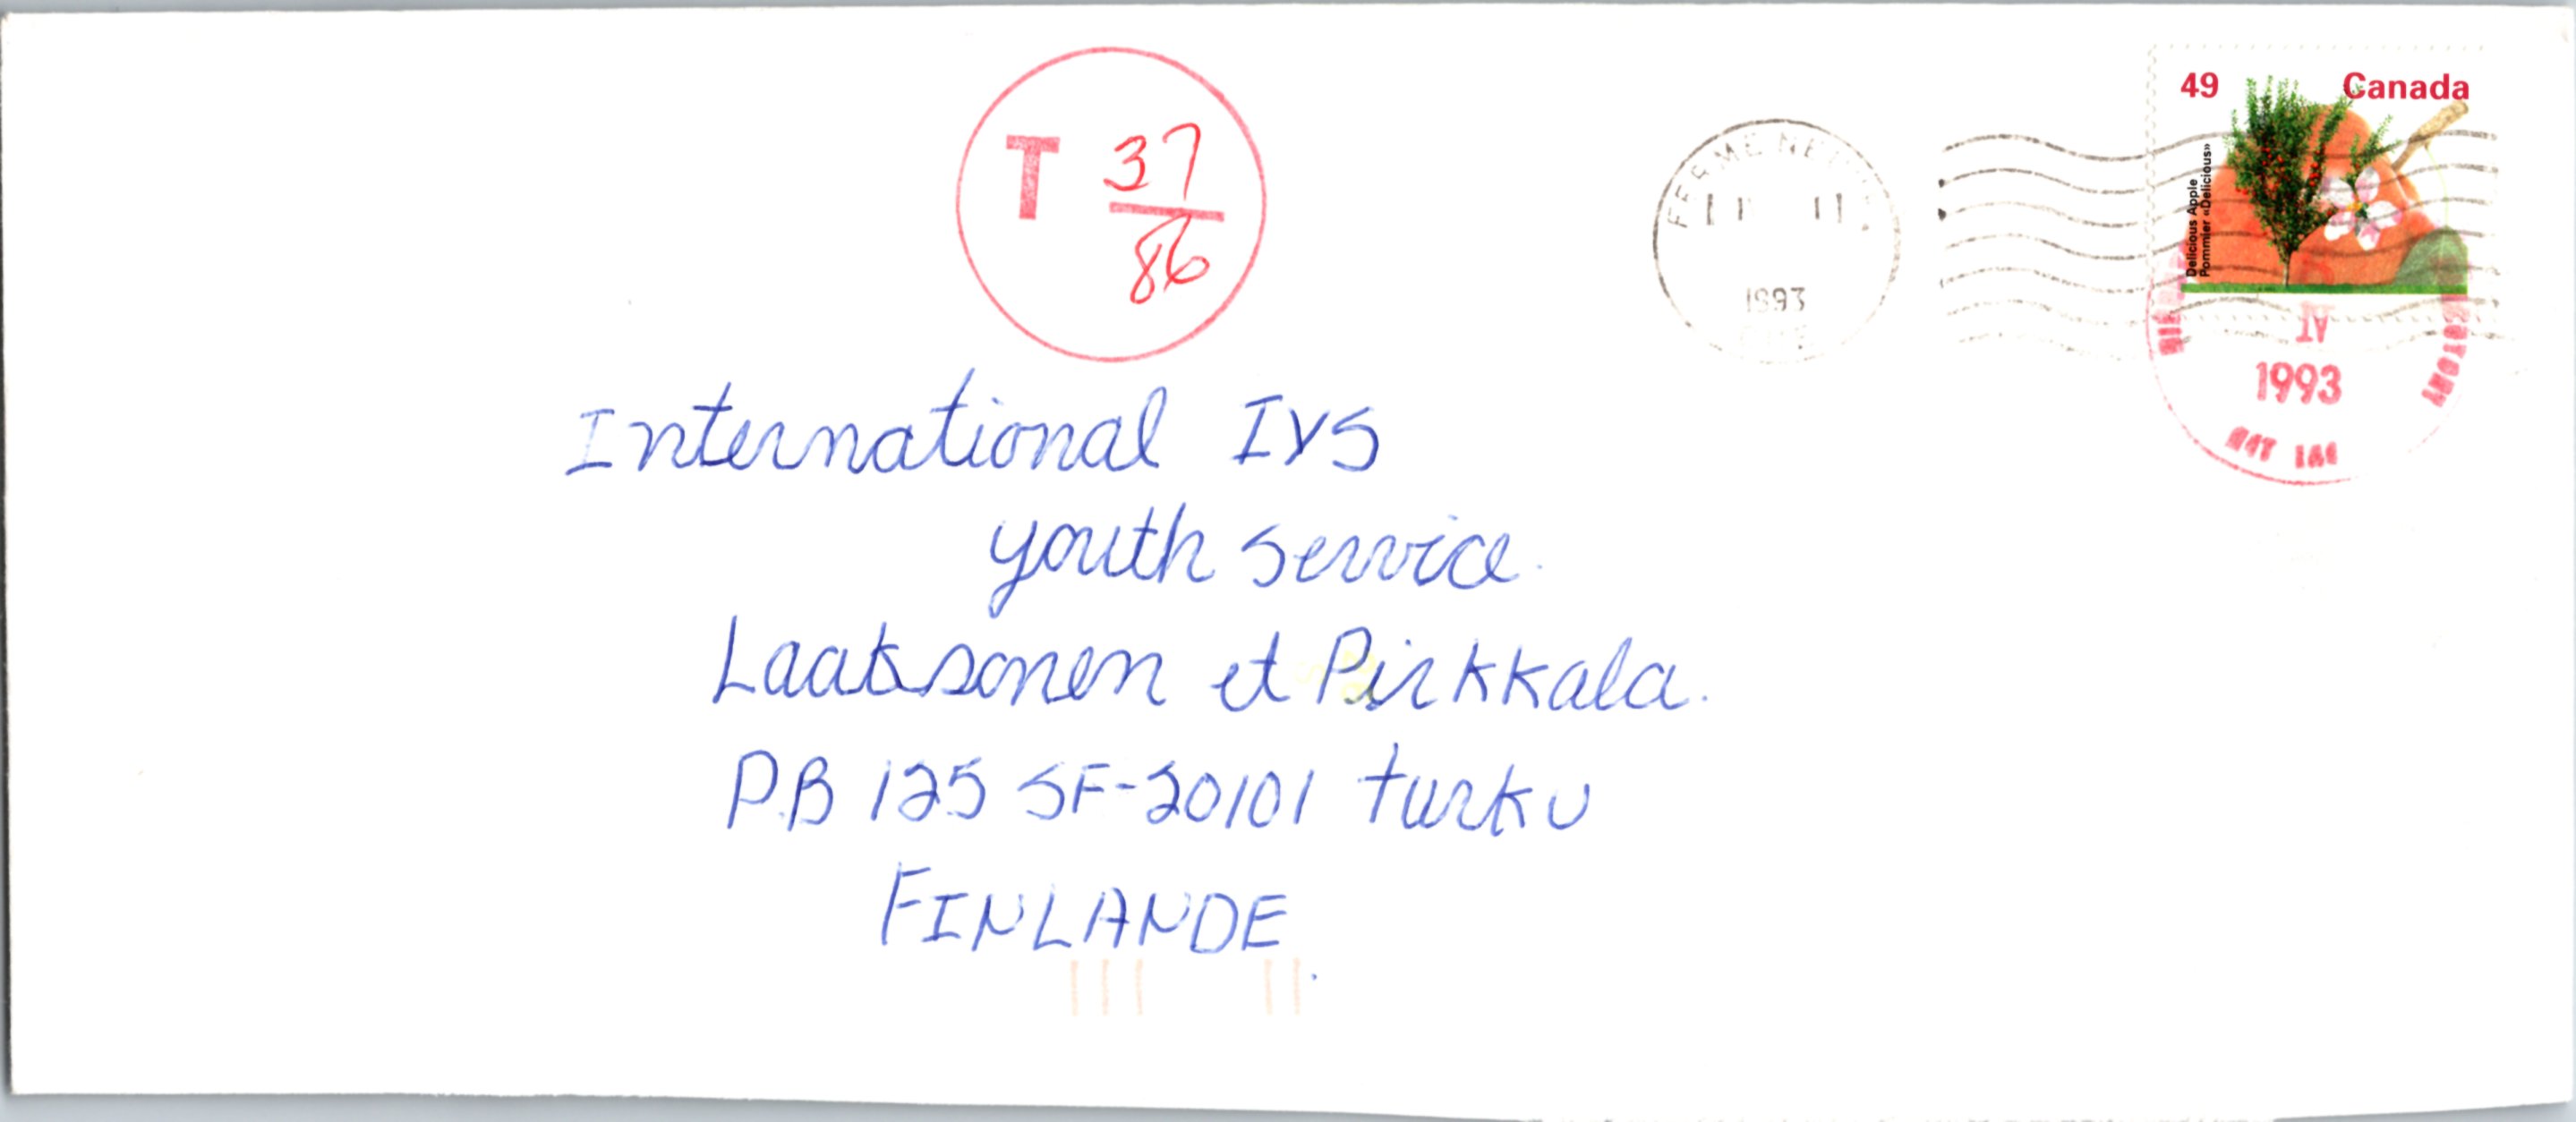 49 Canada
Delicious Apple
Pommier «Delicious»
T 37
86
1993
IV
1993
International IYS
youth service.
Laaksonen et Pirkkala.
P.B 125 SF-20101 turku
FINLANDE.